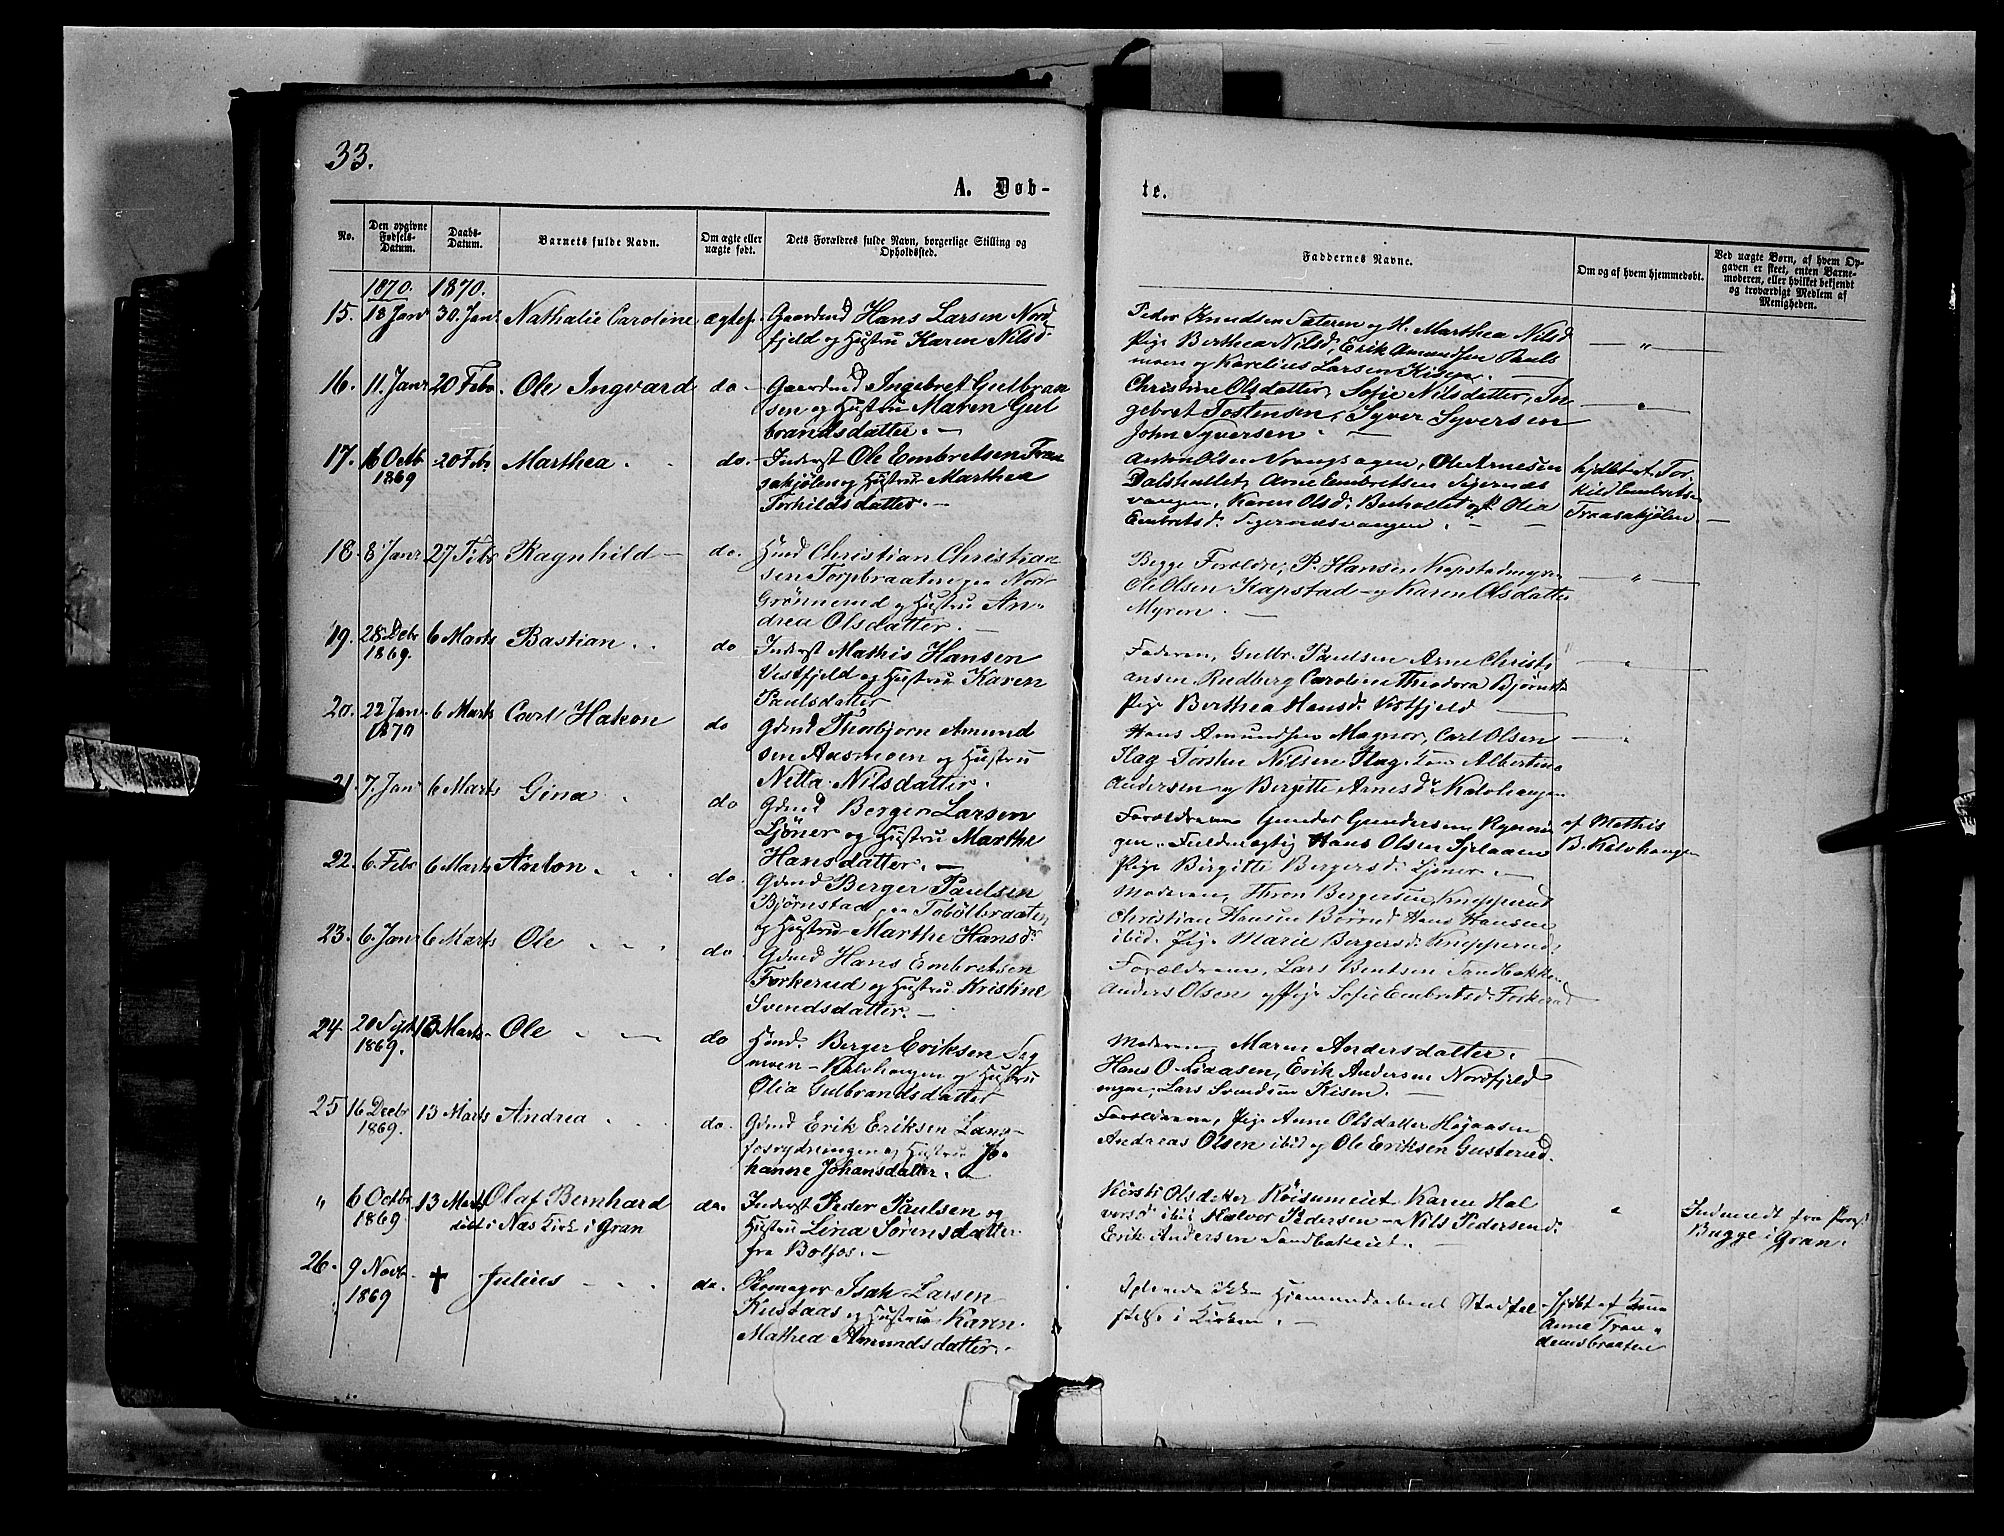 33.
A. Døb-
te.
No.
Den opgivne Fødsels-Datum.
Daabs-Datum.
Barnets fulde Navn.
Om ægte eller uægte født.
Dets Forældres fulde Navn, borgerlige Stilling og Opholdssted.
Faddernes Navne.
Om og af hvem hjemmedøbt.
Ved uægte Børn, af hvem Opgaven er skeet, enten Barnemoderen, eller hvilket bekjendt og troværdigt Medlem af Menigheden.
1870. 1870.
15. 18 Janr 30. Janr Nathalie Caroline ægtef. Gaardmd Hans Larsen Nord
fjeld og Hustru Karen Nilsd.
Peder Knudsen Sæteren og H. Marthea Nilsd
Pige Berthea Nilsd, Erik Amundsen Pauls
moen og Karelius Larsen Kisen. —
16. 11. Janr 20 Febr. Ole Ingvard do. Gaardmd Ingebret Gulbran
sen og Hustru Maren Gul
brandsdatter. —
Christine Olsdatter, Sofie Nilsdatter, In
gebret Tostensen, Syver Syversen
John Syversen. —
17. 16 Octb 1869 20 Febr Marthea do. Inderst Ole Embretsen Fraa
sakjølen og Hustru Marthea
Torkildsdatter. —
Anton Olsen Vangsagen, Ole Arnesen
Dalsholtet, Arne Embretsen
vangen, Karen Olsd. og P. Olia
Embretsd.
hjdbt af Tor
kild Embretsen
Fraasakjølen. —
18. 8 Janr 27 Febr Ragnhild do. Hmd Christian Christian
sen Torpbraaten paa Nord
Grønnerud og Hustru An
drea Olsdatter. —
Begge Forældre, P. Hansen Kapstadmyren
Ole Olsen Kapstad og Karen Olsdatter
Myren. —
19. 28 Decbr 1869. 6 Marts Bastian do Inderst Mathis Hansen
Vestfjeld og Hustru Karen
Paulsdatter
Faderen, Gulbr. Paulsen Arne Christi
ansen Rudberg Caroline Theodora Bjørnst.
Pige Berthea Hansd. Vestfjeld —
20. 22 Janr 1870 6 Marts Carl Hakon do Gdmd Thorbjørn Amund
sen Aasmoen og Hustru
Netta Nilsdatter.
Hans Amundsen Magnor, Carl Olsen
Hag Torsten Nilsen Hag, Albertine
Andersen og Bergitte Arnesd. Kalvhaugen
21. 7. Janr 6 Marts Gina do Gdmd Berger Larsen
Ljøner og Hustru Marthe
Hansdatter. —
Forældrene Gunder Gundersen
gen. Fuldmægtig Hans Olsen
Pige Birgitte Bergersd. Ljøner. —
af Mathis
B. Kalvhaugen
22. 6. Febr 6 Marts Anton do. Gdmd Berger Paulsen
Bjørnstad paa Tobølbraaten
og Hustru Marthe Hansd.
Moderen, Thron Bergersen Knapperud
Christian Hansen Børrud Hans Hansen
ibid. Pige Marie Bergersd. Knapperud.
23. 6. Janr 6 Marts Ole do Gdmd Hans Embretsen
Forkerud og Hustru Kristine
Svendsdatter. —
Forældrene, Lars Bentsen Sandbakken
Anders Olsen og Pige Sofie Embretsd. Forkerud
24. 20 Sept 1869. 13 Marts. Ole do Hmd. Berger Eriksen Sig
moen — Kalvhaugen og Hustru
Olia Gulbrandsdatter
Moderen, Maren Andersdatter.
Hans O. Liaasen, Erik Andersen Nordfjeld
, Lars Svendsen Kisen. —
25 16 Decbr 1869. 13 Marts Andrea do. Gdmd Erik Eriksen Lang
fosrydningen og Hustru Jo-
hanne Johansdatter. —
Forældrene, Pige Anne Olsdatter Højaasen
Andreas Olsen ibid og Ole Eriksen Gusterud.
" 6 Octbr 1869. 13 Marts Olaf Bernhard
døbt i Næs Kirk i Gran
do. Inderst Peder Paulsen og
Hustru Lina Sörensdatter
fra Bolfos. —
Kirsti Olsdatter Røisumeiet Karen Hal
vorsd ibid Halvor Pedersen — Nils Pedersen
Erik Andersen Sandbakeiet. —
Indmeldt fra Prost
Bugge i Gran.
26. 9 Novb 1869 ✝ Julius do. Skomager Isak Larsen
Kustaas og Hustru Karen
Mathea Amundsdatter. —
Oplevede ikke Hjemmedaabens Stadfæ
stelse i Kirken. —
Hjdbt af Kone
Anne Tran
demsbraaten